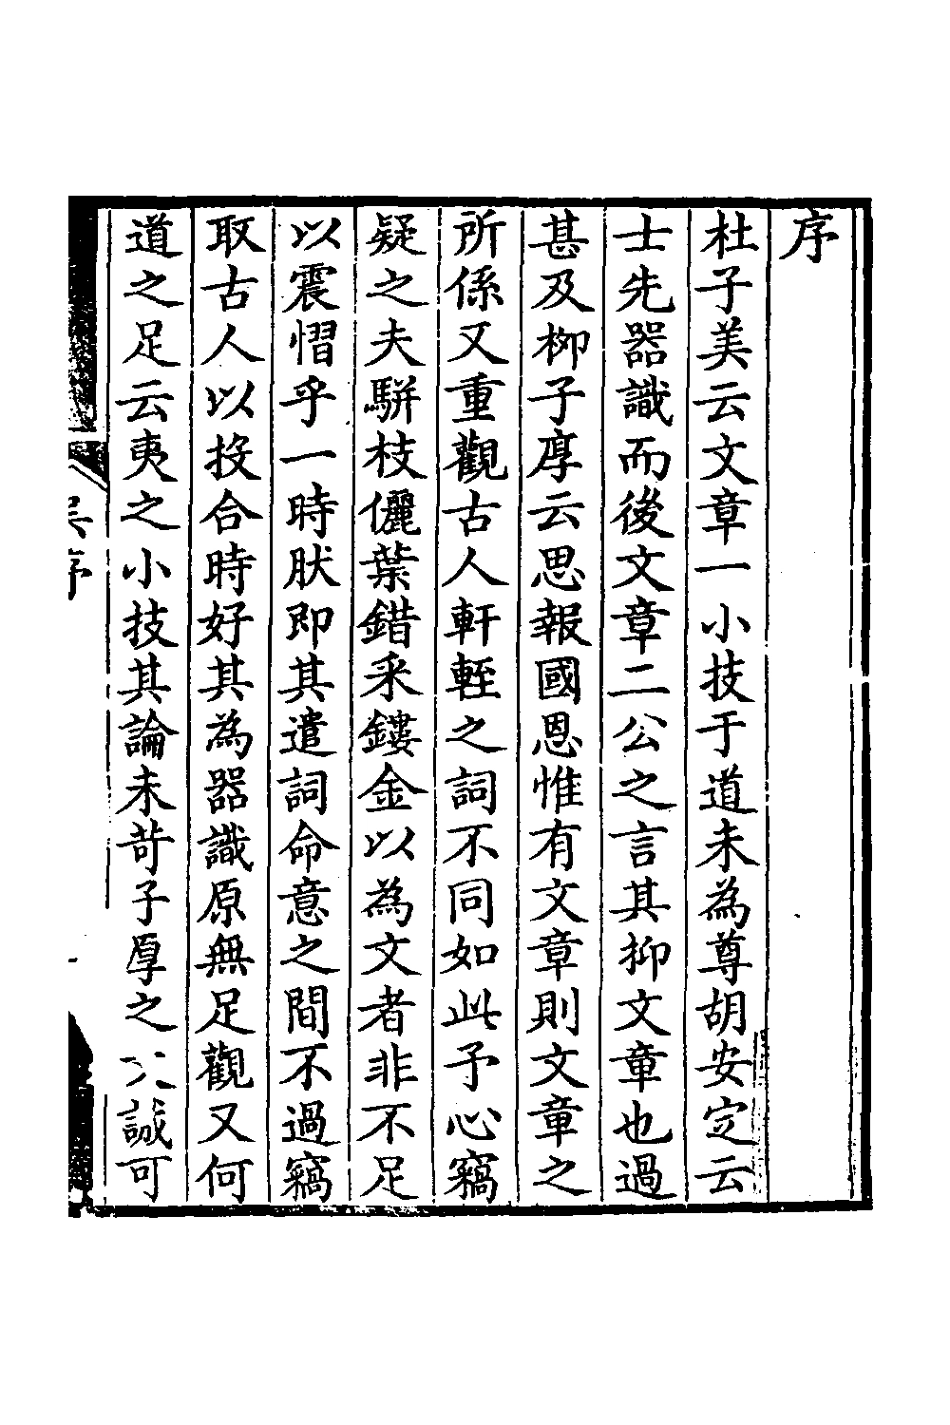 序
杜子美云文章一小技于道未為尊胡安定云
士先器識而後文章二公之言其抑文章也過
甚及栁子厚云思報國恩惟有文章則文章之
所係又重觀古人軒輊之詞不同如此予心竊
疑之夫駢枝儷葉錯采鏤金以為文者非不足
以震慴乎一時肰即其遣詞命意之間不過竊
取古人以投合時好其為器識原無足觀又何
道之足云夷之小技其論未苛子厚之 誠可
序